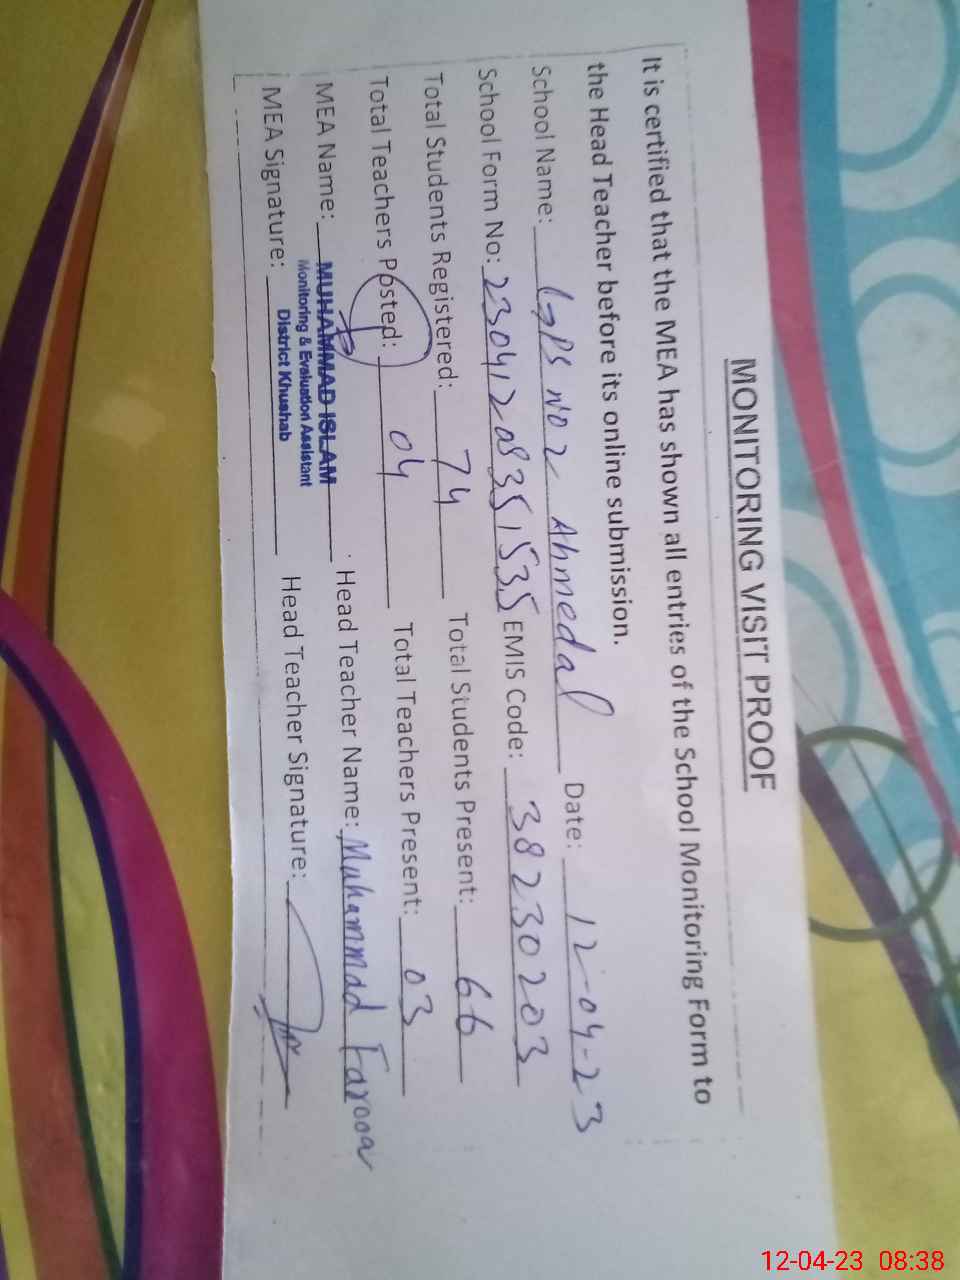 MONITORING VISIT PROOF
It is certified that the MEA has shown all entries of the School Monitoring Form to
the Head Teacher before its online submission.
School Name: GPS NO 2 Ahmedal Date: 12-04-23
School Form No: 23041208351535 EMIS Code: 38230203
Total Students Registered: 74 Total Students Present: 66
Total Teachers Posted: 04 Total Teachers Present: 03
MEA Name: MUHAMMAD ISLAM Head Teacher Name: Muhammad Farooq
Monitoring & Evaluation Assistant
District Khushab
MEA Signature: Head Teacher Signature:
12-04-23 08:38